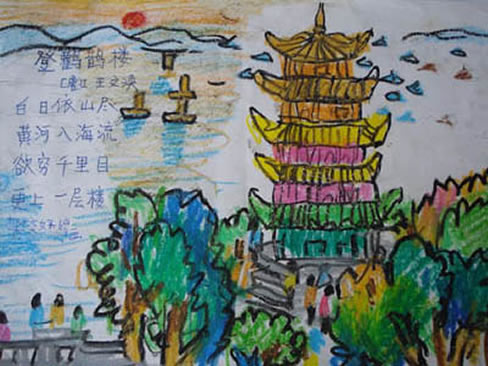 登鹳鹊楼
[唐] 王之涣
白日依山尽
黄河入海流
欲穷千里目
更上一层楼